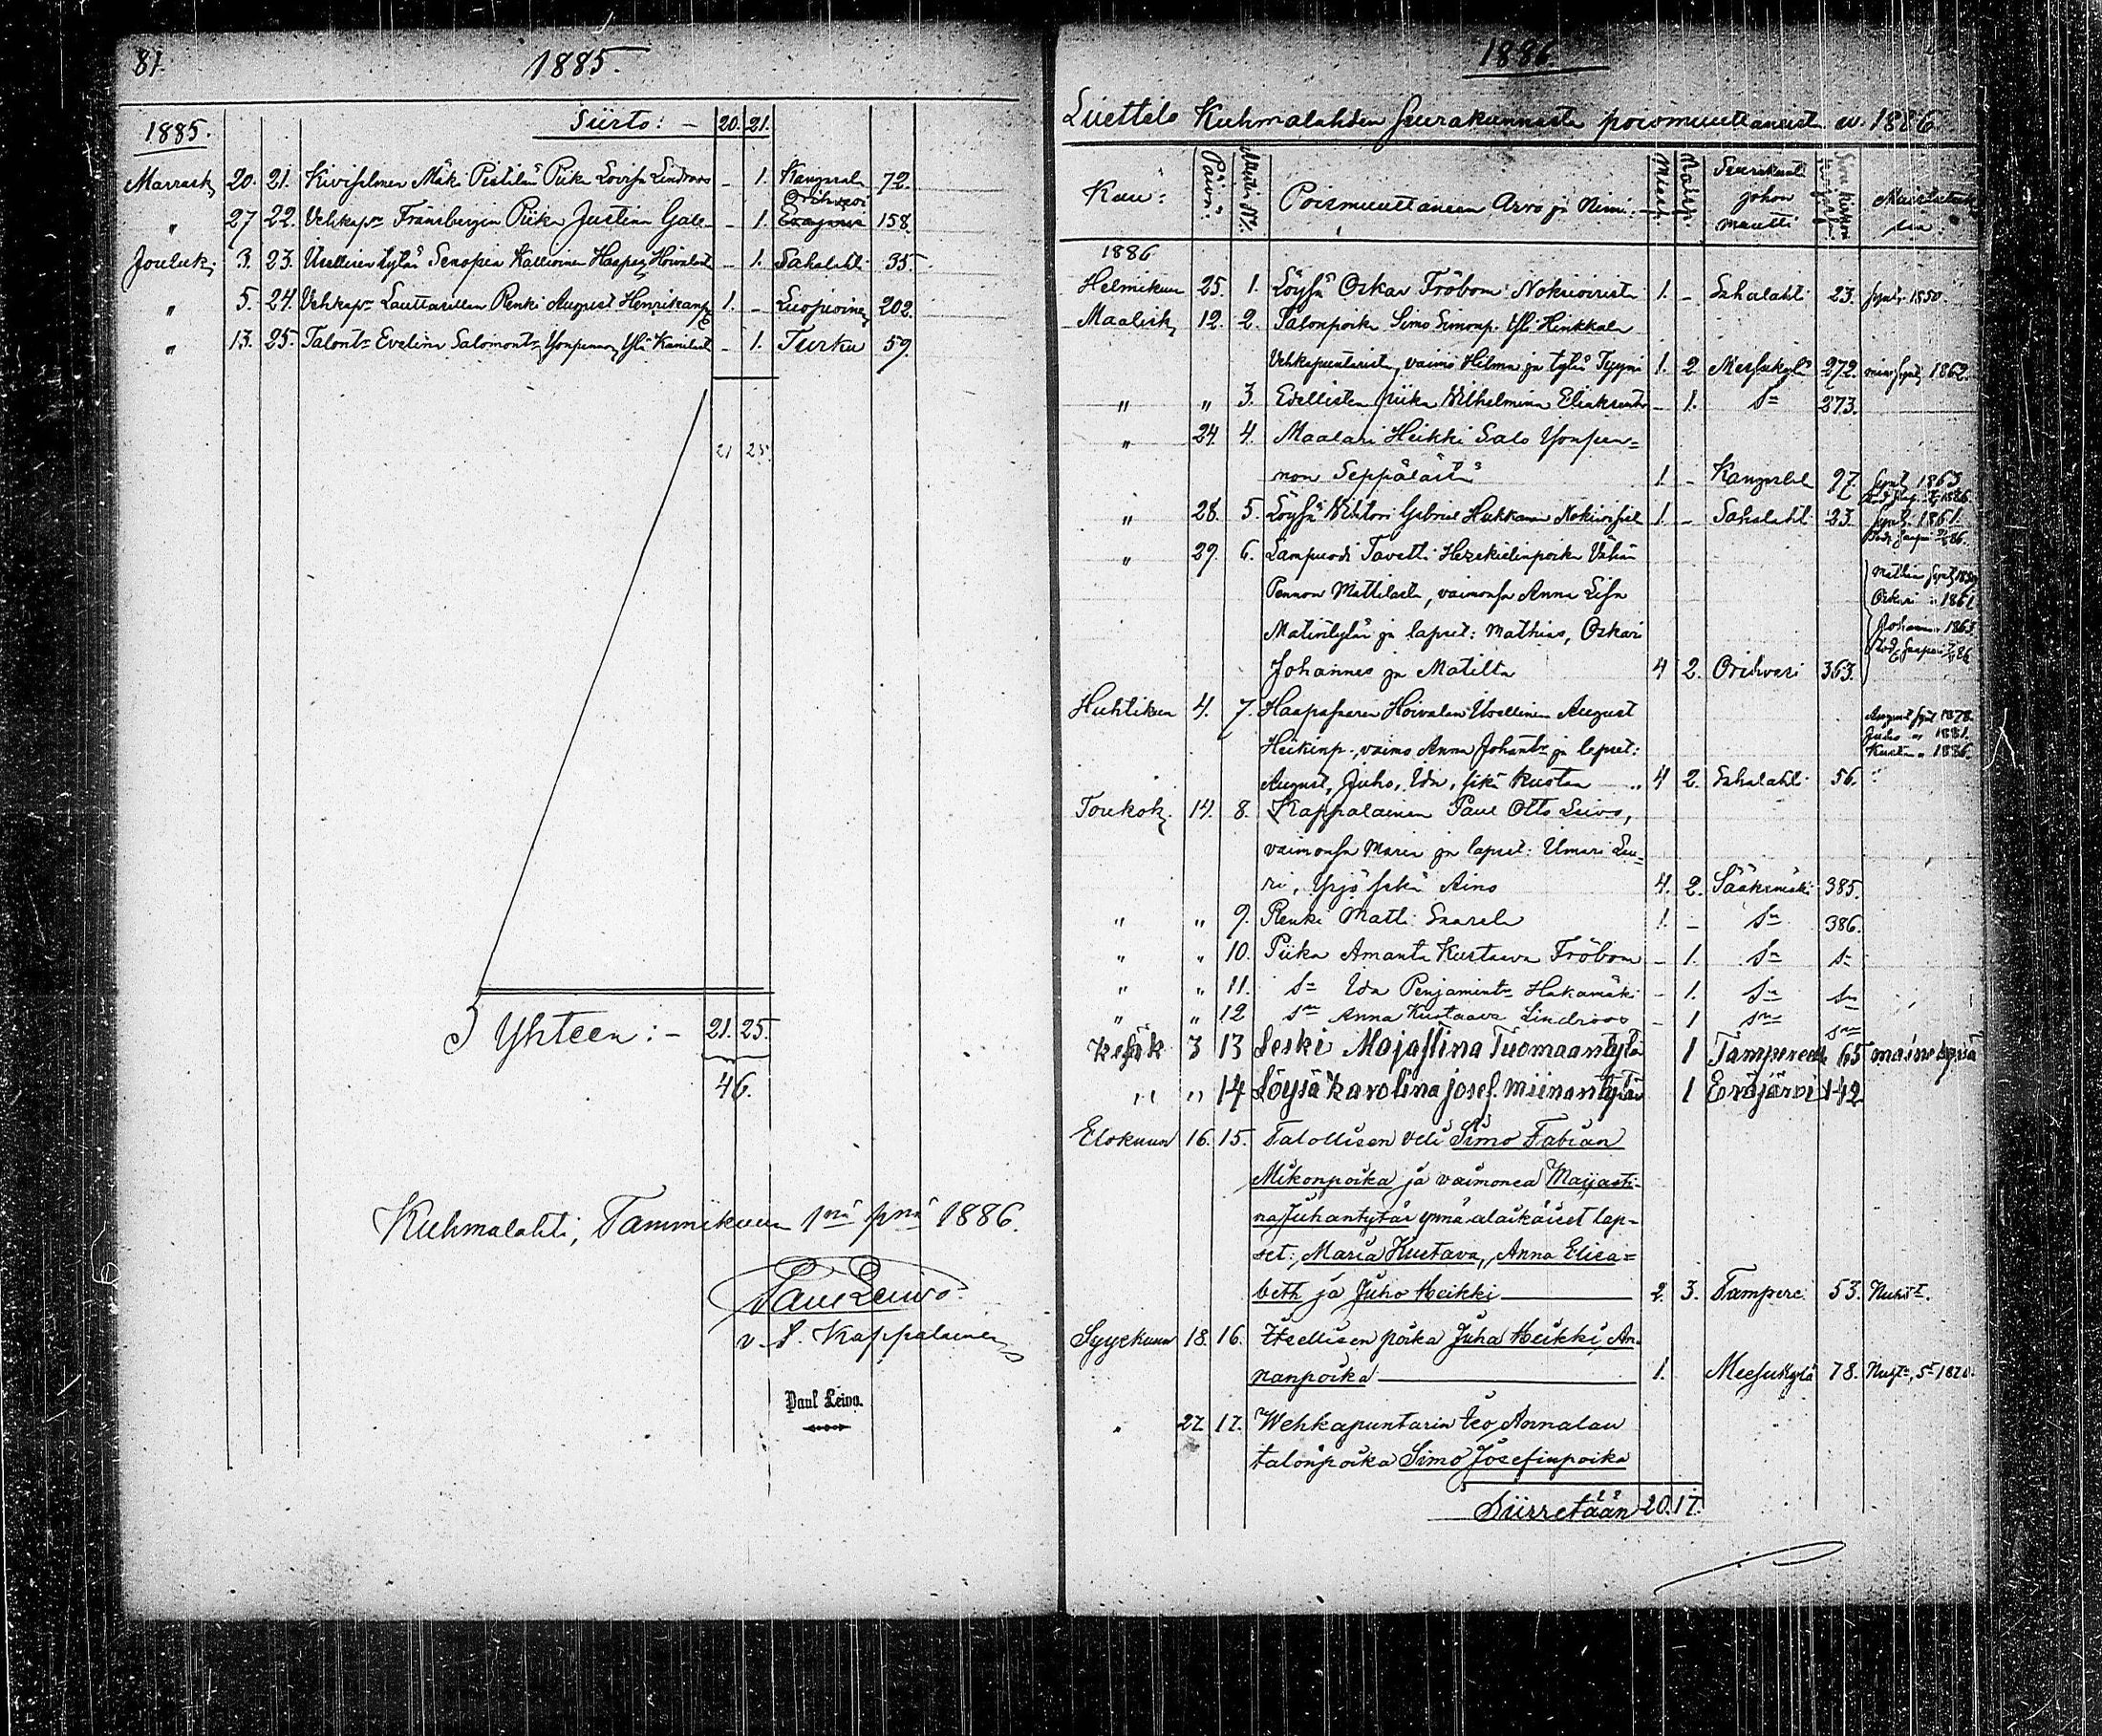 81.
1885.
Siirto: - 20. 21.
1885.
Marrask. 20. 21. Kivisalmen Mäki Pietilän Piika Lovisa Lindroos - 1. Kangasala 72.
Orihvesi
„ 27 22. Vehkap. Fransbergin Piika Justiina Gabr. - 1. Eräjärvi 158.
Jouluk. 3. 23. Itsellisen tytär Serafia Kallioinen Haapas. Hoivalasta - 1. Sahalahti 35.
„ 5. 24. Vehkap. Lauttasillan Renki August Henrikanp. 1. - Luopioinen 202.
„ 13. 25. Talont. Evelina Salomont. Yonpennon Yli Kamilast. - 1. Turku 59.
21 25
Yhteen: - 21. 25.
46.
Kuhmalahti, Tammikuun 1nä pnä 1886.
Paul Leivo
v. t. Kappalainen
Paul Leivo.
1886.
Luettelo Kuhmalahden seurakunnasta poismuuttaneista v. 1886
Kuu: Päivä: Muutto №: Poismuuttaneen Arvo ja Nimi: Miesp. Naisp. Seurakunta johon muutti Muistutuksia:
1886
Helmikuun 25. 1. Löysä Oskar Fröbom Nokivirista 1. - Sahalahti 23. synt. 1850.
Maalisk. 12. 2. Talonpoika Simo Simonp. Yli Hinkkala
Vehkapuntarista, vaimo Hilma ja tytär Tyyni 1. 2 Messukylä 272. synt. 1862.
„ „ 3. Edellisten piika Wilhelmina Eliaksent. - 1. s= 273.
„ 24. 4. Maalari Heikki Salo Yonpen=
non Seppälästä 1. - Kangasala 97. synt. 1863
„ 28. 5. Löysä Wihtori Gabriel Hukkanen 1. - Sahalahti 23. synt. 1861.
„ 29. 6. Lampuodi Taavetti Hezekielinpoika Vähän
Pennon Mattilasta, vaimonsa Anna Lisa
Matintytär ja lapset: Mathias, Oskari
Johannes ja Matilta 4 2. Orihvesi 363.
Mathias synt. 1859
Oskari „ 1861
Johannes „ 1863
Huhtikuu 4. 7. Haapasaaren Hoivalan Itsellinen August
Heikinp., vaimo Anna Johant. ja lapset:
August, Juho, Ida, sekä Kustaa 4 2. Sahalahti 56.
August synt. 1878.
Juho „ 1881.
Kustaa „ 1886.
Toukok. 14. 8. Kappalainen Paul Otto Leivo,
vaimonsa Maria ja lapset: Ilmari Lau=
ri, Yrjö sekä Aino 4. 2. Sääksmäki 385.
„ „ 9. Renki Matti Saarela 1. - s= 386.
„ „ 10. Piika Amanta Kustaava Fröbom - 1. s= s=
„ „ 11. s= Ida Penjamint. Hakamäki - 1. s= s=
„ „ 12 s= Anna Kustaava Lindroos - 1 s= s=
Kesäk 3 13 Leski Majastina Tuomaantytär 1 Tampereelle 65
„ „ 14 Löysä karolina josef. miinantytär 1 Eräjärvi 142
Elokuun 16. 15. Talollisen veli Simo Fabian
Mikonpoika ja vaimonsa Maijasti=
na Juhantytär ynnä alaikäiset lap=
set: Maria Kustava, Anna Elisa=
beth ja Juho Heikki 2. 3. Tampere 53.
Syyskuun 18. 16. Itsellisen poika Juha Heikki, An=
nanpoika 1. Messukylä 78.
„ 27. 17. Wehkapuntarin Iso Annalan
talonpoika Simo Josefinpoika
Siirretään 20. 17.